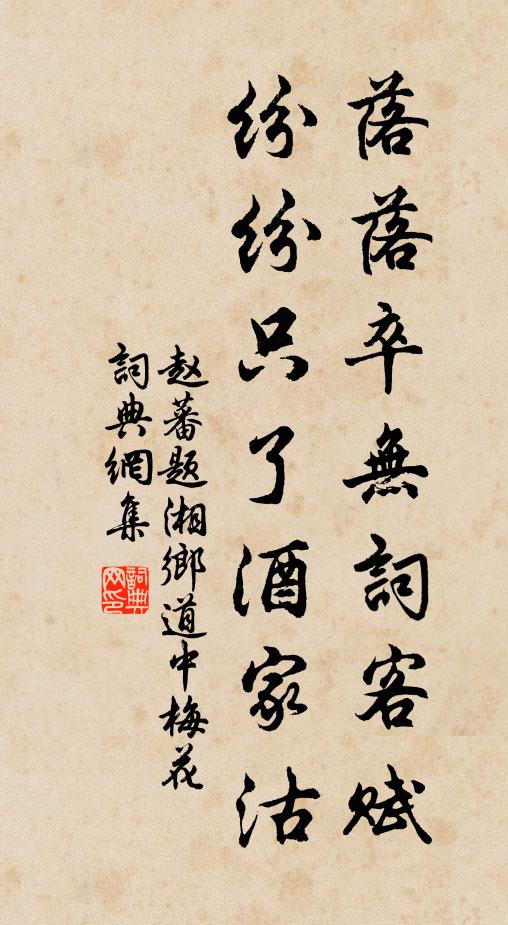 落落卒無詞客賦
紛紛只了酒家沽
赵蕃题湘鄉道中梅花
詞典網集
詞典网印